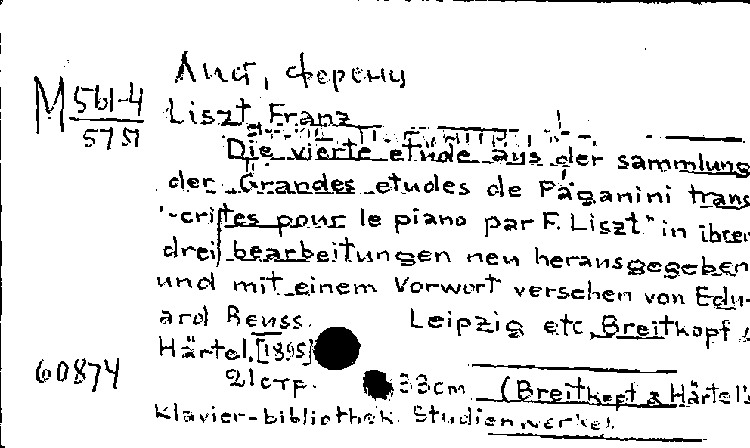 Лист, Ференц
М 561-4
5751
Liszt, Franz
Die vierte etüde aus der sammlung
der "Grandes etudes de Paganini trans-
-crites pour le piano par F. Liszt" in ihren
drei bearbeitungen neu herausgegeben
und mit einem Vorwort versehen von Edu-
ard Reuss. Leipzig etc, Breitkopf &
Härtel, [1895]
60874
21 стр. 33cm (Breitkopf & Härtel's
Klavier-bibliothek. Studienwerke).